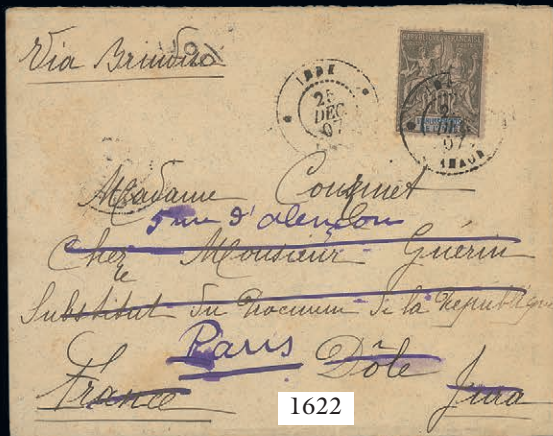 Via Brindisi
INDE
25
DEC
07
07
Madame Couzinet
5 rue d'alençon
Chez Monsieur Guérin
Substitut du Procureur de la République
Paris Dôle
France Jura
1622